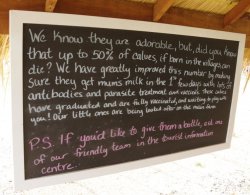 We Know they are adorable, but, did you know
that up to 50% of calves, if born in the villages can
die? We have greatly improved this number by making
sure they get mum's milk in the 1st few days with lots of
antibodies and parasite treatment and vaccines. These calves
have graduated and are fully vaccinated, and waiting to play with
you! Our little ones are being looked after on the main farm.
P.S. If you'd like to give them a bottle, ask one
of our friendly team in the tourist information
centre..